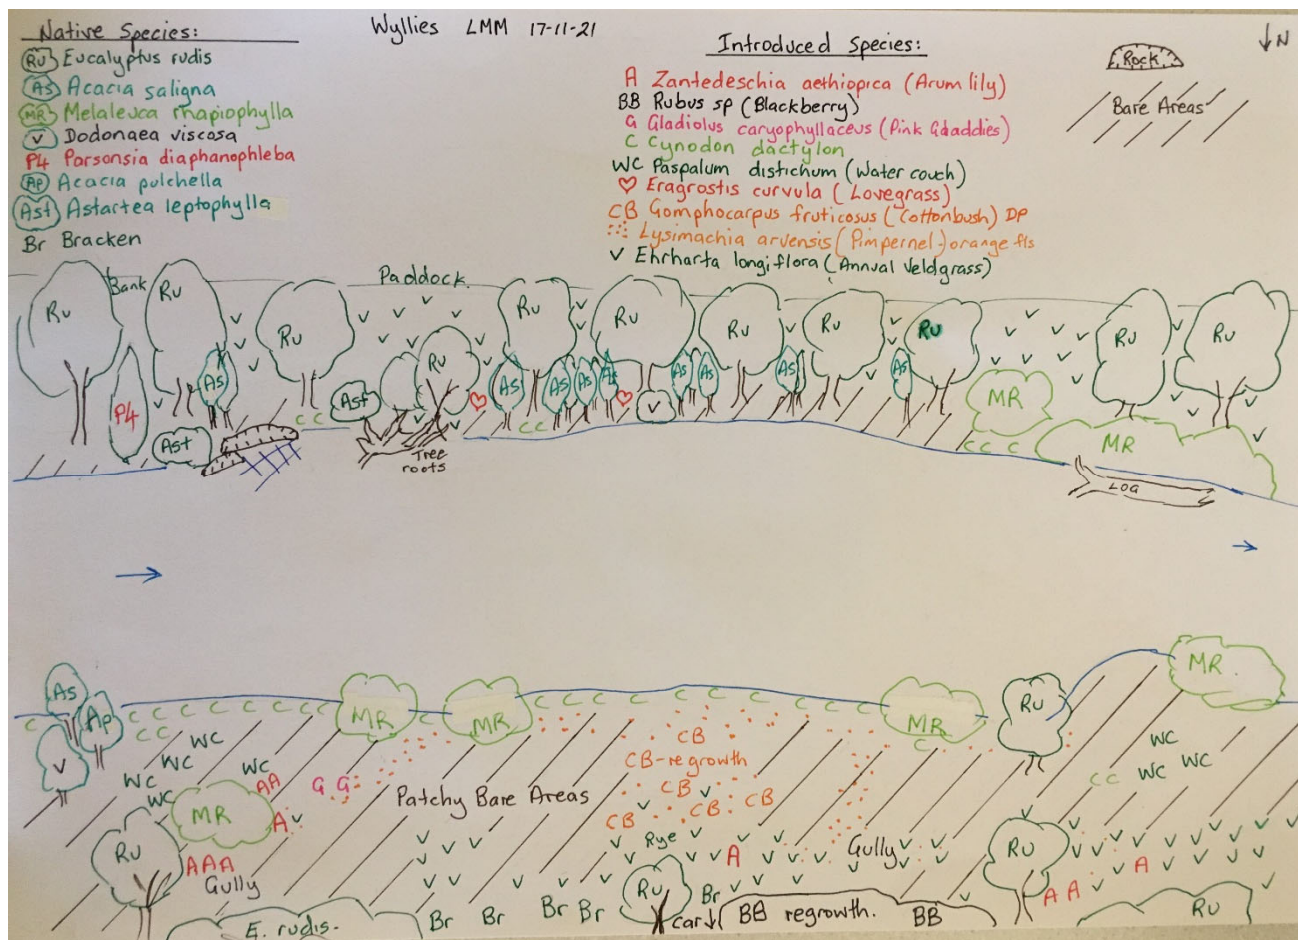 Native Species:
Ru Eucalyptus rudis
As Acacia saligna
MR Melaleuca rhapiophylla
V Dodonaea viscosa
P4 Parsonsia diaphanophleba
Ap Acacia pulchella
Ast Astartea leptophylla
Br Bracken
Wyllies LMM 17-11-21
Introduced Species:
A Zantedeschia aethiopica (Arum lily)
BB Rubus sp (Blackberry)
G Gladiolus caryophyllaceus (Pink Gladdies)
C Cynodon dactylon
WC Paspalum distichum (Water couch)
♡ Eragrostis curvula (Lovegrass)
CB Gomphocarpus fruticosus (Cottonbush) DP
Lysimachia arvensis (Pimpernel) orange fls
✓ Ehrharta longiflora (Annual Veldgrass)
↓N
Rock
Bare Areas
Paddock
Bank
Ru Ru Ru Ru Ru Ru Ru Ru Ru Ru Ru
As As As As As As As As As
P4
Ast
Ast
V
MR
C C
C C
C C C
MR
Tree
roots
LOG
As
Ap
V
C C C C C C C C C C C C C C C C C
MR MR MR MR
Ru
WC
WC
WC
WC
WC
MR
AA
A
G G
CB
CB-regrowth
CB
CB CB
CB
Patchy Bare Areas
Rye
A
Gully
WC
WC WC
C C
Ru
AAA
Gully
E. rudis.
Br Br Br Br
Ru
Br
car↓
BB regrowth. BB
Ru
A A A
Ru